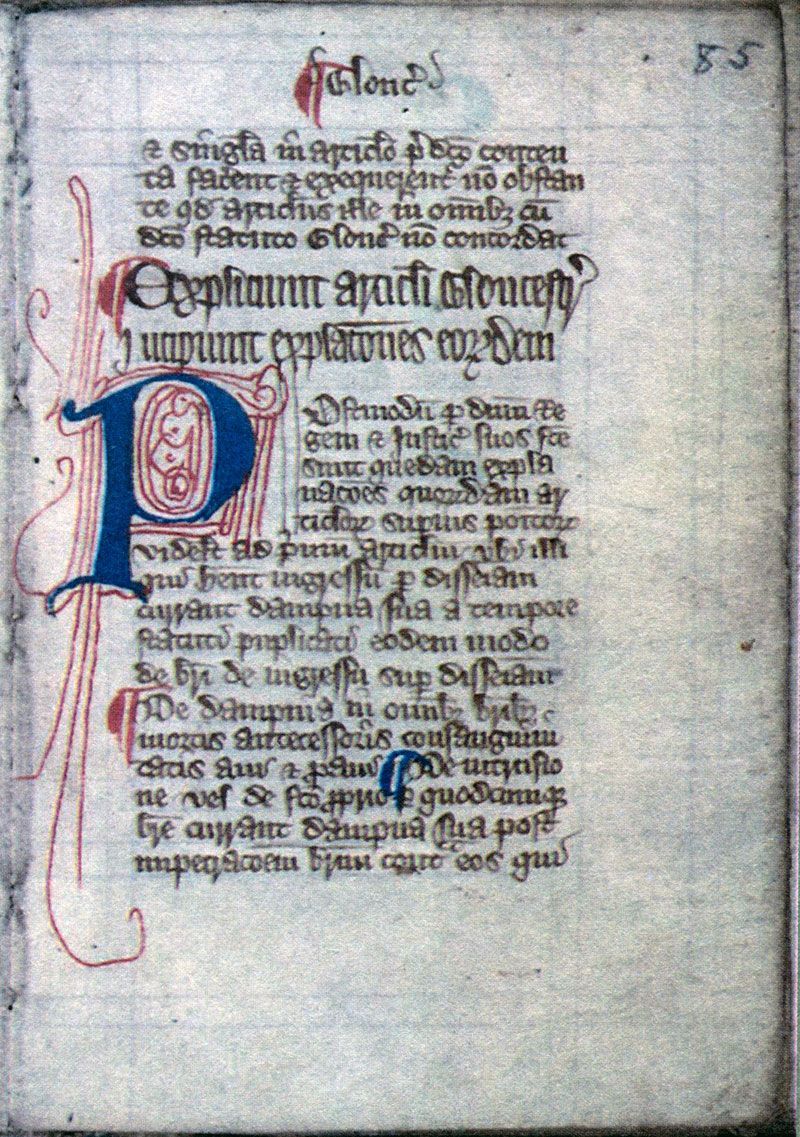 85
Glouc̄
& sīgl̄a in articl̄o p̄dc̄o conten
ta facent & exequerent᷑ nō obstan
te qd̄ articl̄us ille in om̄ibꝫ cū
dc̄o statuto Glouc̄ nō concordat
Expliciunt articl̄i Gloucestr̄
Incipiunt explac̄ōnes eoꝝdem
Postmodū ꝑ dn̄m Re
gem & Justic̄ suos fc̄e
sunt quedam expla
nac̄oēs quorūdam ar
ticloꝝ supius poītoꝝ
videlt̄ ad p̄mū articl̄m vbi illi
qui hēnt ingressū ꝑ disseiam
currant dampna sua a tempore
statuti puplicati eodem modo
de br̄i de ingressu sup disseiam
De dampnis in om̄ibꝫ br̄ibꝫ
mortis antecessoris consanguini
tatis aui & ꝓaui De intrusio
ne vel de fc̄o ꝓprio ꝑ quodcumqꝫ
br̄e currant dampna sua post
impetrac̄oēm br̄ium cont᷑ eos qui